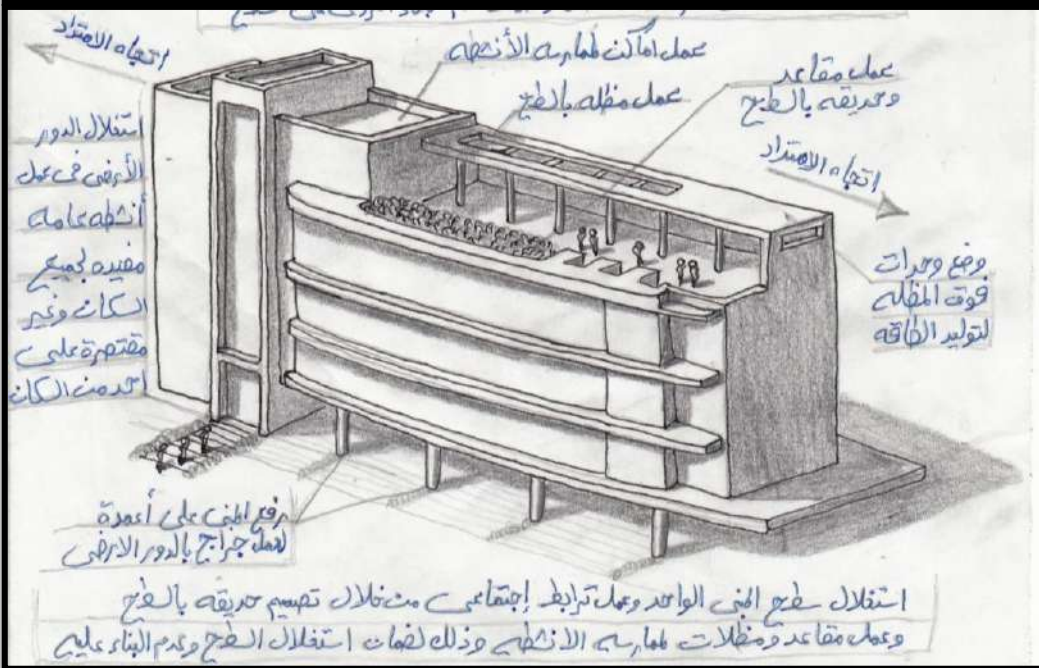 اتجاه الامتداد
عمل اماكن لممارسه الأنشطه
عمل مظله بالسطح
عمل مقاعد
وحديقه بالسطح
اتجاه الامتداد
استغلال الدور
الأرضى فى عمل
أنشطه عامه
مفيده لجميع
السكان وغير
مقتصرة على
احد من السكان
وضع وحدات
فوق المظله
لتوليد الطاقه
رفع المبنى على أعمدة
لعمل جراج بالدور الارضى
استغلال سطح المبنى الواحد وعمل ترابط إجتماعى من خلال تصميم حديقه بالسطح
وعمل مقاعد ومظلات لممارسه الانشطه وذلك لضمان استغلال السطح وعدم البناء عليه